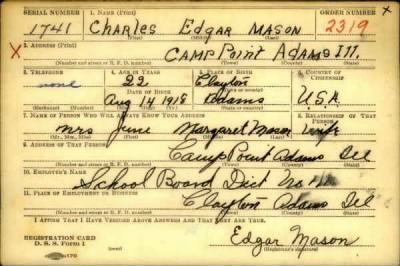 SERIAL NUMBER 1. NAME (Print) ORDER NUMBER
1741 Charles Edgar Mason 2319
(First) (Middle) (Last)
2. ADDRESS (Print)
Camp Point Adams Ill.
(Number and street or R. F. D. number) (Town) (County) (State)
3. TELEPHONE 4. AGE IN YEARS 5. PLACE OF BIRTH 6. COUNTRY OF CITIZENSHIP
none 22 Clayton
DATE OF BIRTH (Town or county)
Aug 14 1918 Adams U.S.A.
(Exchange) (Number) (Mo.) (Day) (Yr.) (State or country)
7. NAME OF PERSON WHO WILL ALWAYS KNOW YOUR ADDRESS 8. RELATIONSHIP OF THAT PERSON
Mrs June Margaret Mason Wife
(Mr., Mrs., Miss) (First) (Middle) (Last)
9. ADDRESS OF THAT PERSON
Camp Point Adams Ill
(Number and street or R. F. D. number) (Town) (County) (State)
10. EMPLOYER'S NAME
School Board Dist No
11. PLACE OF EMPLOYMENT OR BUSINESS
Clayton Adams Ill
(Number and street or R. F. D. number) (Town) (County) (State)
I AFFIRM THAT I HAVE VERIFIED ABOVE ANSWERS AND THAT THEY ARE TRUE.
REGISTRATION CARD
D. S. S. Form 1
Edgar Mason
(Registrant's signature)